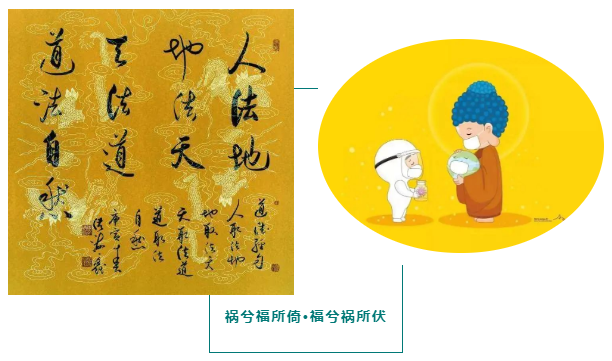 人法地
地法天
天法道
道法自然
道德经句
人取法地
地取法天
天取法道
道取法
自然
庚寅
祸兮福所倚•福兮祸所伏